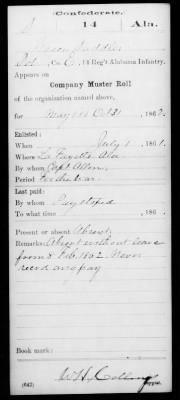 Confederate.
14 Ala.
Co. C, 14 Reg't Alabama Infantry.
Appears on
Company Muster Roll
of the organization named above,
for May 1 to Oct 31 , 186 2.
Enlisted:
When July 1 , 186 1.
Where La Fayette Ala
By whom Capt Allen
Period for the war
Last paid:
By whom Pay
To what time , 186 .
Present or absent Absent
Remarks: Absent without leave
from 8 Feb. 1862 Never
recd any pay
Book mark:
(642) Copyist.